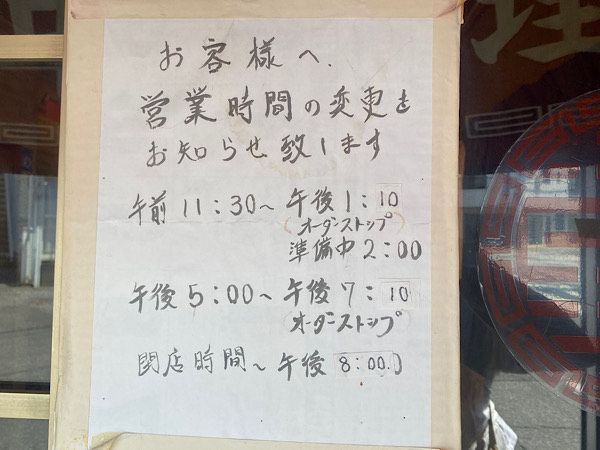 お客様へ.
営業時間の変更を
お知らせ致します
午前11:30～午後1:10
(オーダーストップ)
準備中2:00
午後5:00～午後7:10
(オーダーストップ)
閉店時間～午後8:00.)
理